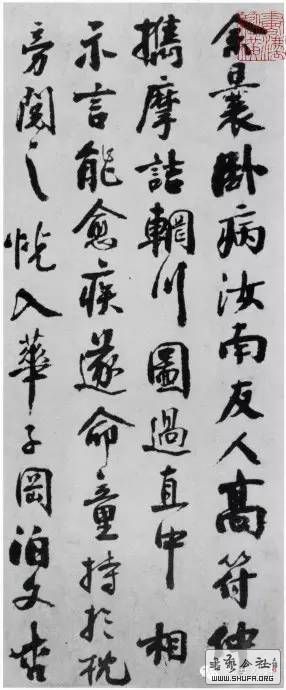 余曩臥病汝南友人高符仲
攜摩詰輞川圖過直中相
示言能愈疾遂命童持於枕
旁閱之恍入華子岡泊文杏
書藝公社
WWW.SHUFA.ORG